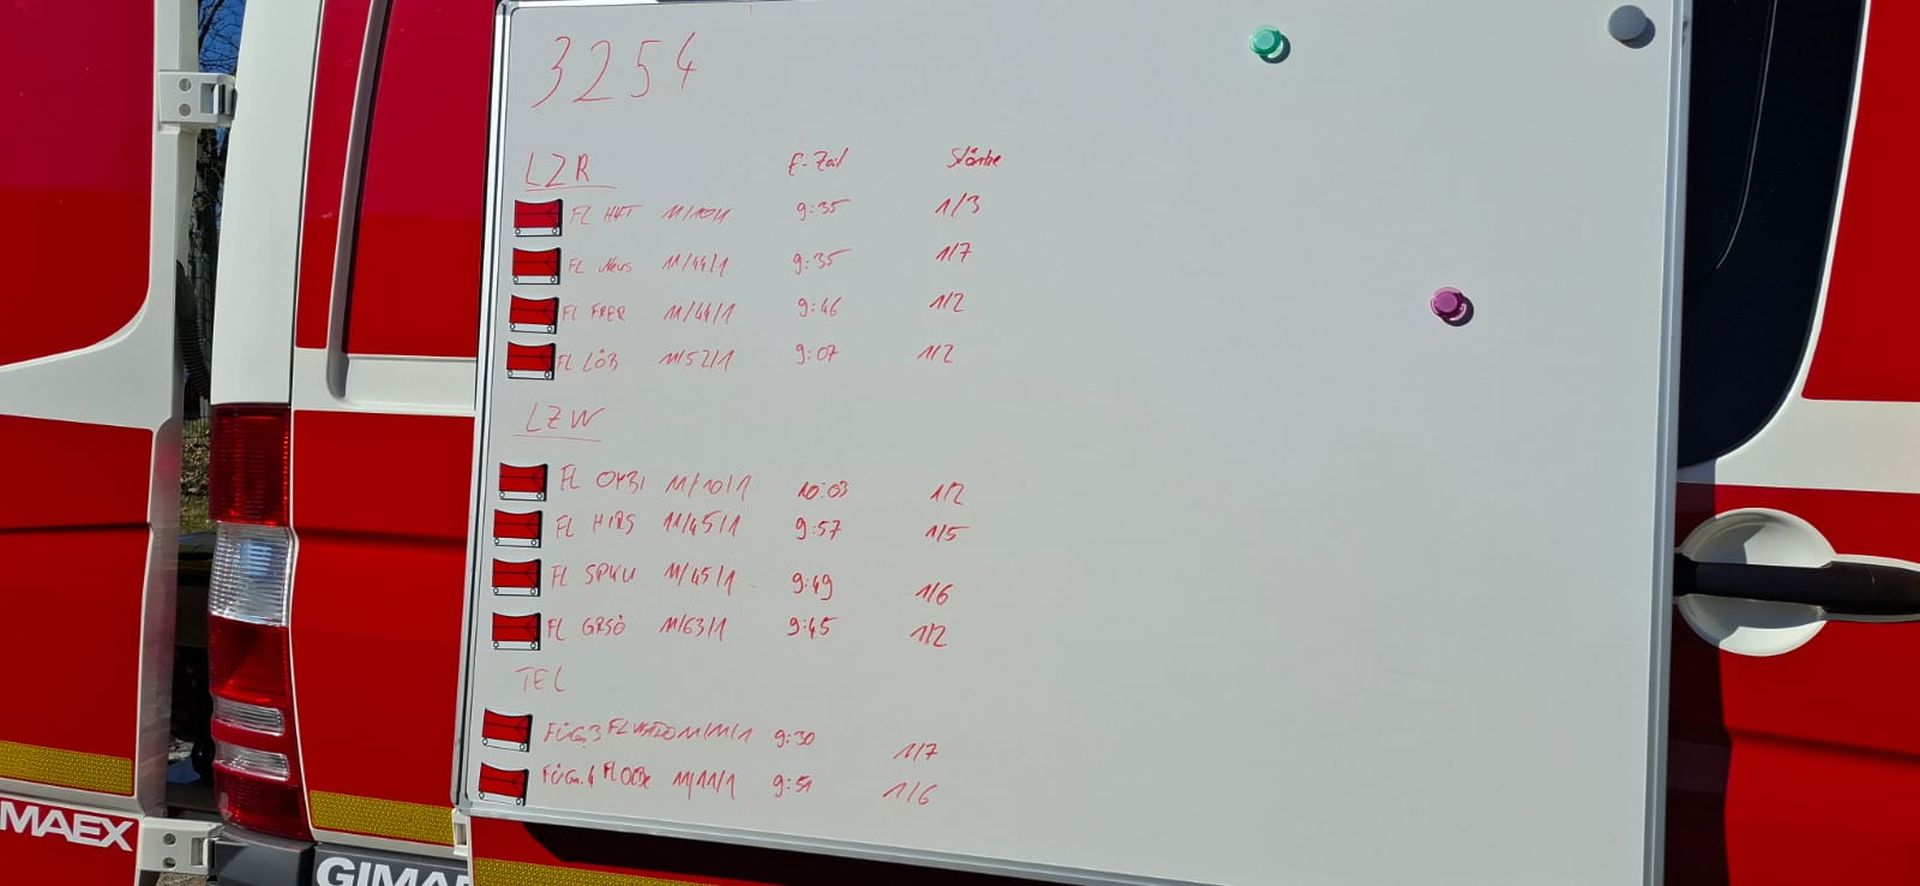 3254
LZR E-Zeit Stärke
FL HHT 11/10/1 9:35 1/3
FL Neus 11/44/1 9:35 1/7
FL FRER 11/44/1 9:46 1/2
FL LÖB 11/52/1 9:07 1/2
LZW
FL OYBI 11/10/1 10:03 1/2
FL HIRS 11/45/1 9:57 1/5
FL SPKU 11/45/1 9:49 1/6
FL GRSÖ 11/63/1 9:45 1/2
TEL
FüG.3 FL 11/11/1 9:30 1/7
FüGr.4 FL 11/11/1 9:51 1/6
MAEX
GIMA